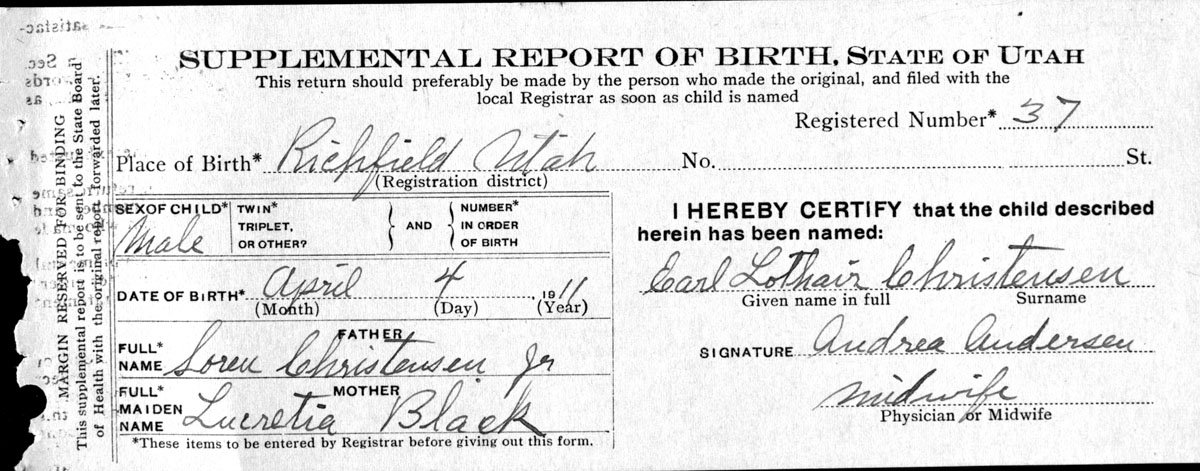 SUPPLEMENTAL REPORT OF BIRTH, STATE OF UTAH
This return should preferably be made by the person who made the original, and filed with the
local Registrar as soon as child is named
Registered Number* 37
Place of Birth* Richfield Utah No. St.
(Registration district)
SEX OF CHILD* Male
TWIN*
TRIPLET,
OR OTHER?
AND
NUMBER*
IN ORDER
OF BIRTH
DATE OF BIRTH* April 4, 1911
(Month) (Day) (Year)
FATHER
FULL*
NAME Loren Christensen Jr
MOTHER
FULL*
MAIDEN
NAME Lucretia Black
*These items to be entered by Registrar before giving out this form.
I HEREBY CERTIFY that the child described
herein has been named:
Earl Lothair Christensen
Given name in full Surname
SIGNATURE Andrea Andersen
Midwife
Physician or Midwife
MARGIN RESERVED FOR BINDING
This supplemental report is to be sent to the State Board
of Health with the original report, forwarded later.